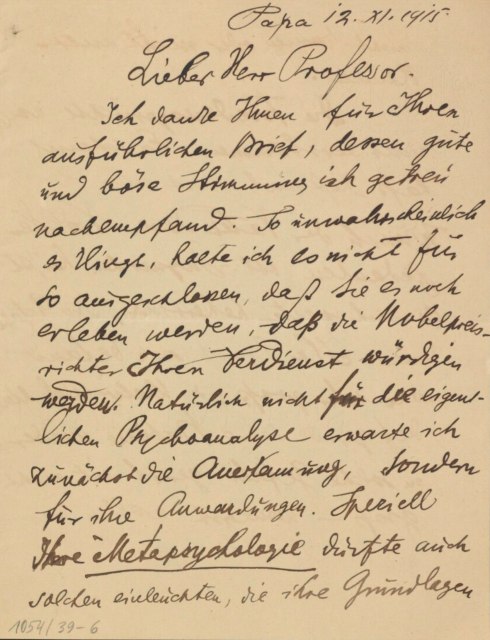 Papa 12. XI. 1915.
Lieber Herr Professor.
Ich danke Ihnen für Ihren
ausführlichen Brief, dessen gute
und böse Stimmung ich getreu
nachempfand. So unwahrscheinlich
es klingt, halte ich es nicht für
so ausgeschlossen, daß Sie es noch
erleben werden, daß die Nobelpreis-
richter Ihren Verdienst würdigen
werden. Natürlich nicht für die eigent-
lichen Psychoanalyse erwarte ich
zunächst die Anerkennung, sondern
für ihre Anwendungen. Speziell
Ihre Metapsychologie dürfte auch
solchen einleuchten, die ihre Grundlagen
1054/39-6